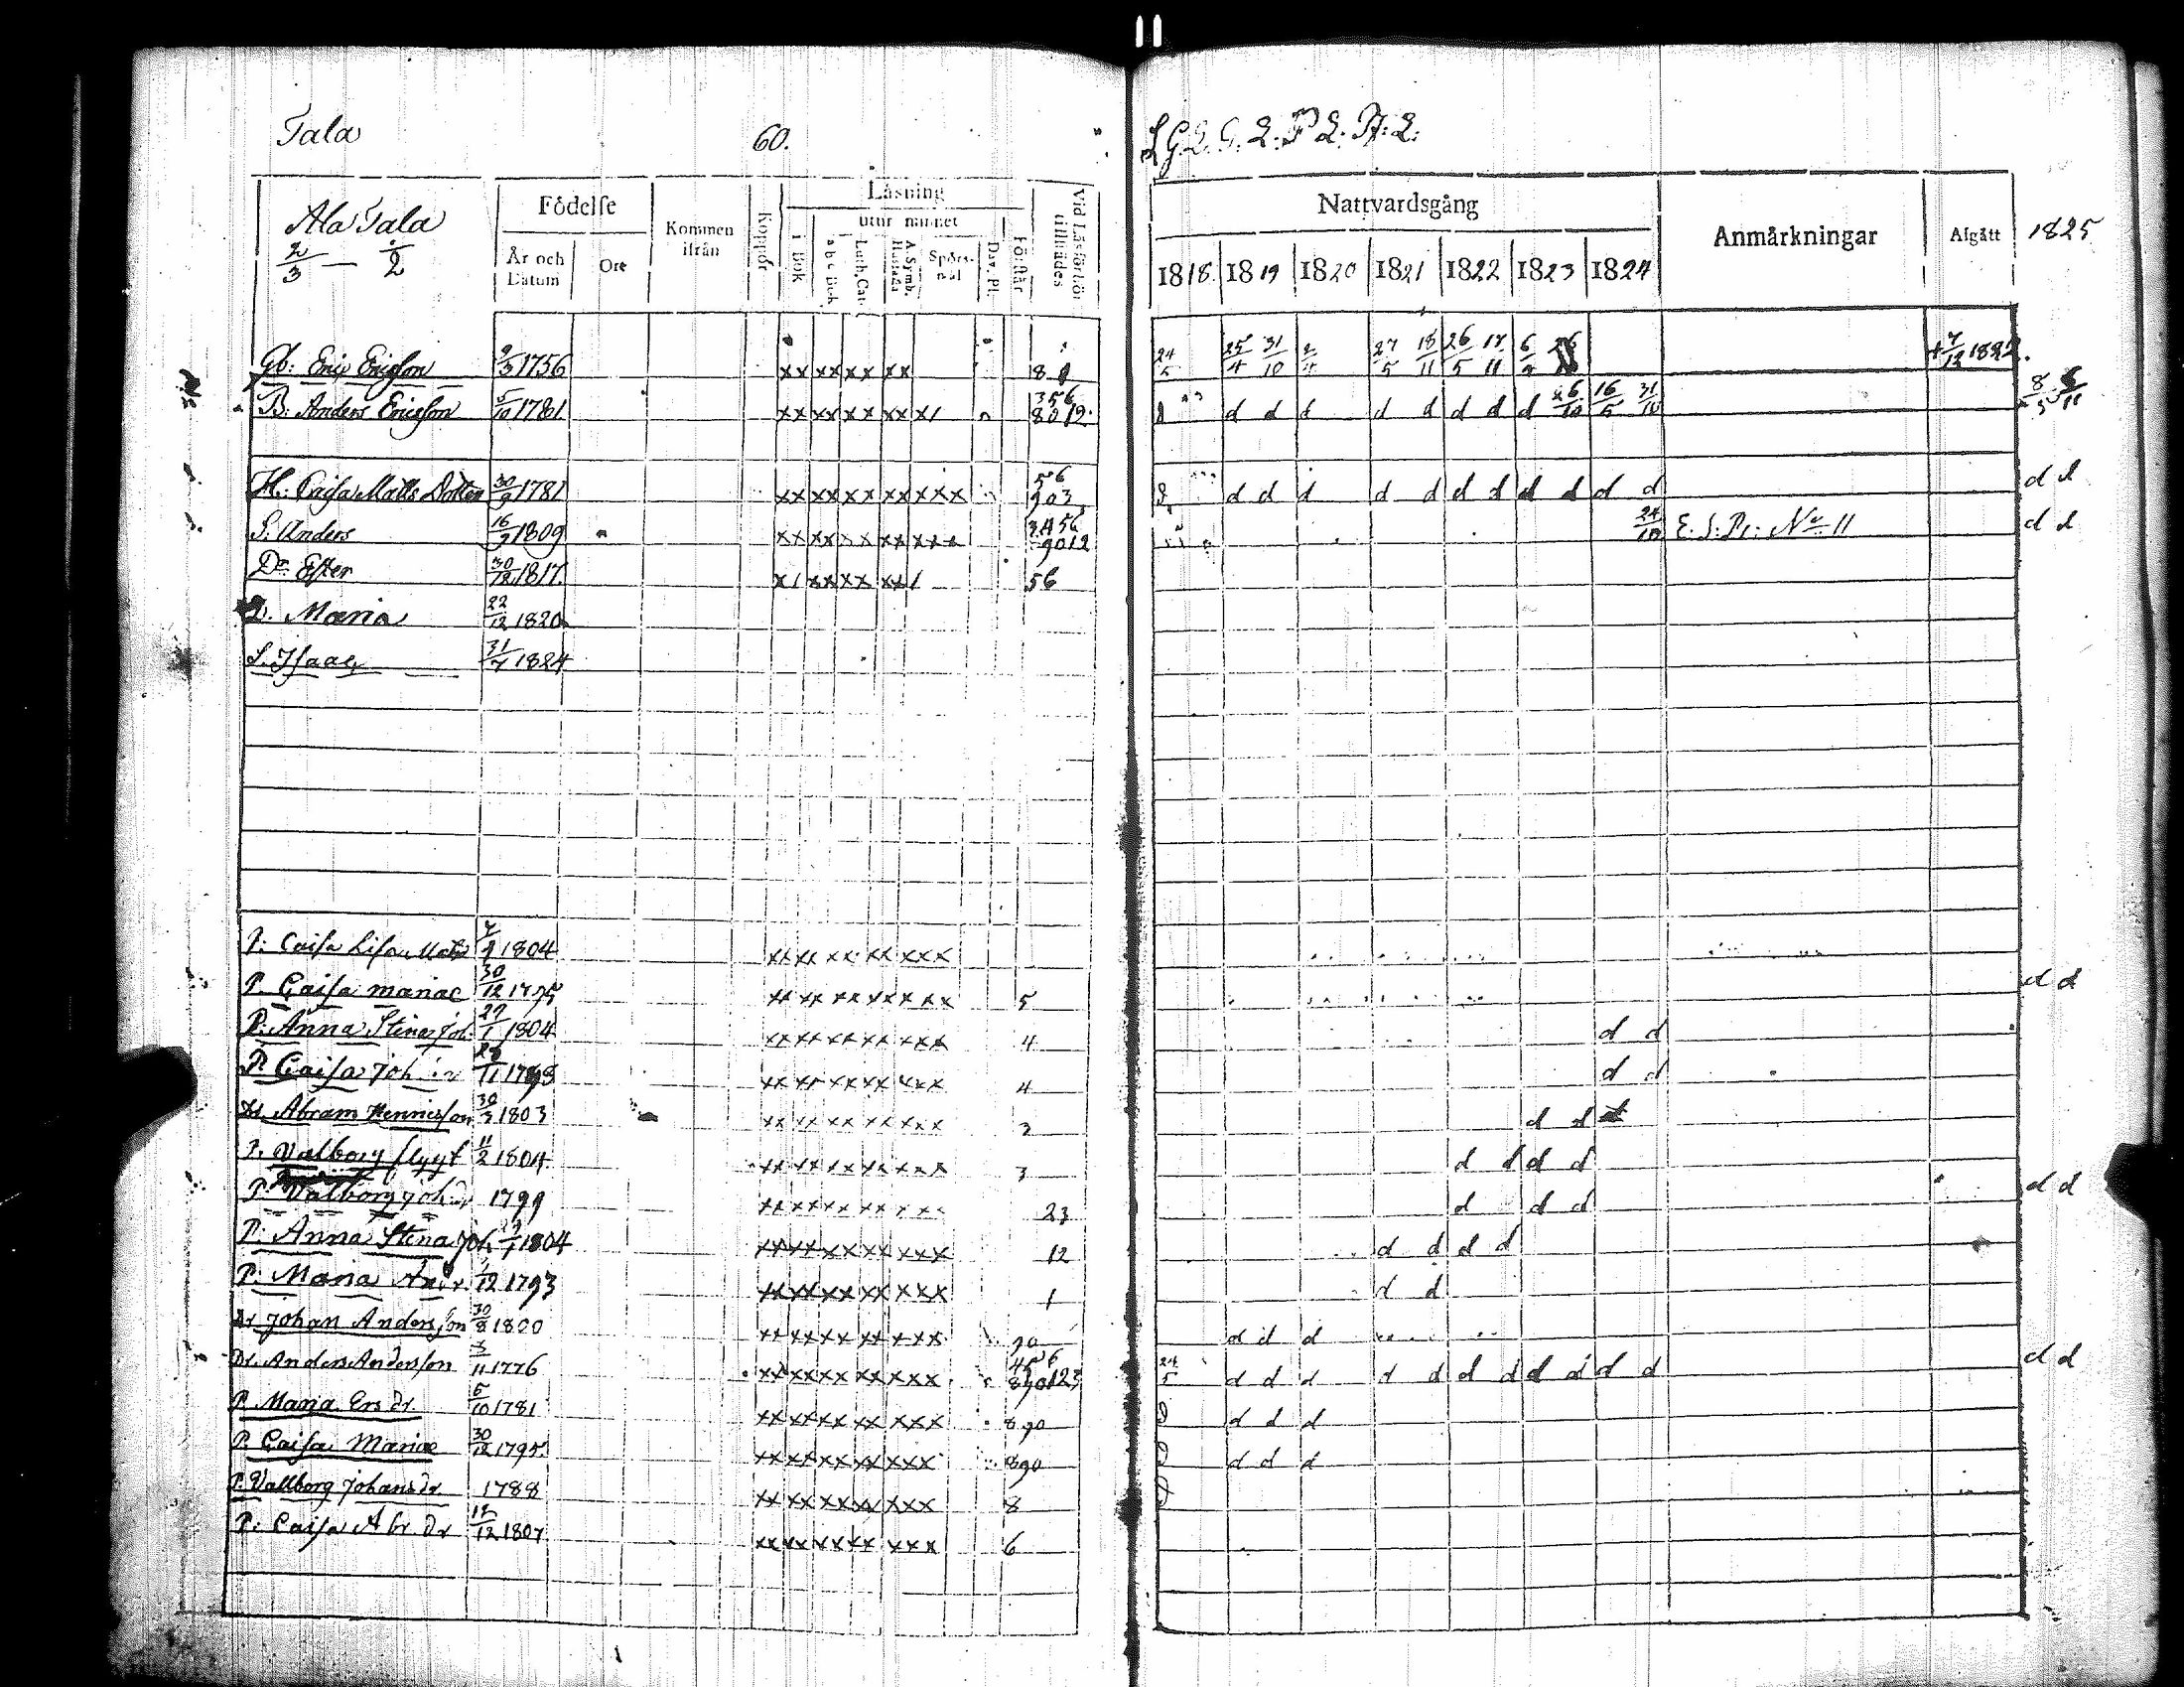 11
Tala
60.
L G. L. P L. H. L.
Ala Tala
2/3 — 1/2
Födelse
År och Datum
Ort
Kommen ifrån
Koppor
Läsning
utur minnet
i Bok
a b c Bok
Luth. Cat.
A. Symb. Hustafla
Spörsmål
Dav. Ps.
Förstår
Vid Läsförhör tillstädes
Nattvardsgång
1818. 1819 1820 1821 1822 1823 1824
Anmärkningar
Afgått
1825
Gb: Eric Ericson 9/3 1756 xx xx xx xx 24/5 25/4 31/10 27/5 18/11 26/5 17/11 + 7/12 1822.
B. Anders Ericson 5/10 1781 xx xx xx xx x1 356 8012. d d d d d d d d d 26/10 16/5 31/10
H: Caisa Matts Dotter 30/9 1781 xx xx xx xx xxx 56 903 d d d d d d d d d d d d d
S: Anders 16/9 1809 xx xx xx xx xxx 3456 9012 24/10 E. S. Pr: No 11 d d
Dr Ester 30/12 1817 x1 xx xx xx1 56
D. Maria 22/12 1820
S. Isaac 31/7 1824
P: Caisa Lisa Mats 1804 xx xx xx xx xxx
P. Caisa Mariae 30/12 1795 xx xx xx xx xxx 5 d d
P: Anna Stina Joh. 27/1 1804 xx xx xx xx xxx 4 d d
P. Caisa Joh 1798 xx xx xx xx xxx 4 d d
Dr. Abram Hennicsson 30/3 1803 xx xx xx xx xxx 3 d d
P. Valborg flyyt 11/2 1804 xx xx xx xx xxx 3 d d d d
P: Valborg Joh: dr 1799 xx xx xx xx xxx 23 d d d d d
P: Anna Stina Joh. 27/1 1804 xx xx xx xx xxx 12 d d d d
P: Maria Andr. 1793 xx xx xx xx xxx 1 d d
Dr Johan Andersson 30/8 1800 xx xx xx xx xxx 90 d d d
Dr. Anders Andersson 3/11 1776 xx xx xx xx xxx 456 890123 24/5 d d d d d d d d d d d d d
P. Maria Ers dr. 5/10 1781 xx xx xx xx xxx 890 d d d d
P. Caisa Mariae 30/12 1795 xx xx xx xx xxx 890 d d d d
P. Vallborg Johans dr 1788 xx xx xx xx xxx 8 d
P: Caisa Abr. dr 1807 xx xx xx xx xxx 6